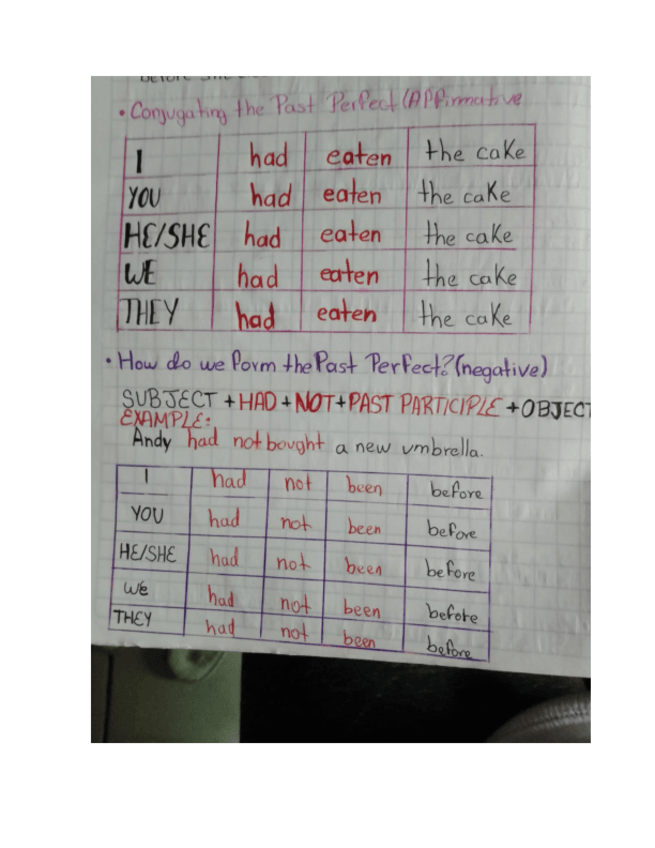 • Conjugating the Past Perfect (Affirmative
I had eaten the cake
YOU had eaten the cake
HE/SHE had eaten the cake
WE had eaten the cake
THEY had eaten the cake
• How do we form the Past Perfect? (negative)
SUBJECT + HAD + NOT + PAST PARTICIPLE + OBJECT
EXAMPLE:
Andy had not bought a new umbrella.
I had not been before
YOU had not been before
HE/SHE had not been before
We had not been before
THEY had not been before